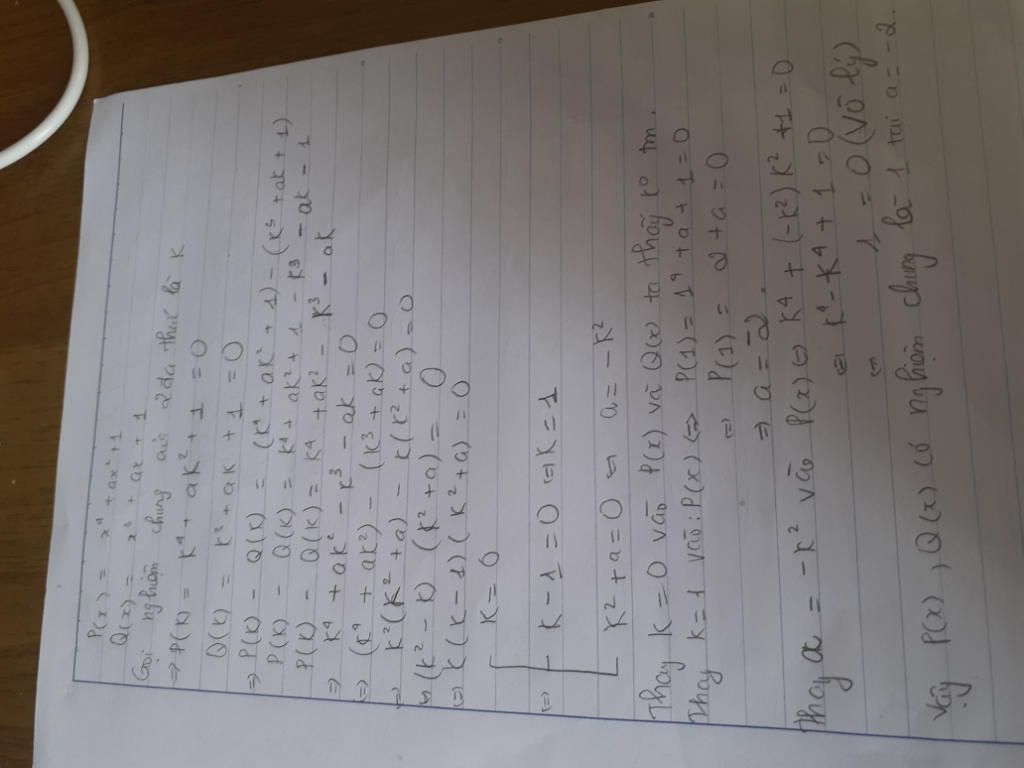 P(x) = x⁴ + ax² + 1
Q(x) = x³ + ax + 1
Gọi nghiệm chung của 2 đa thức là K
=> P(K) = K⁴ + aK² + 1 = 0
Q(K) = K³ + aK + 1 = 0
=> P(K) - Q(K) = (K⁴ + aK² + 1) - (K³ + aK + 1)
P(K) - Q(K) = K⁴ + aK² + 1 - K³ - aK - 1
P(K) - Q(K) = K⁴ + aK² - K³ - aK
=> K⁴ + aK² - K³ - aK = 0
<=> (K⁴ + aK²) - (K³ + aK) = 0
<=> K²(K² + a) - K(K² + a) = 0
<=> (K² - K) (K² + a) = 0
<=> K(K - 1)(K² + a) = 0
K = 0
<=> K - 1 = 0 <=> K = 1
K² + a = 0 <=> a = - K²
Thay K = 0 vào P(x) và Q(x) ta thấy K⁰ tm.
Thay K = 1 vào: P(x) <=> P(1) = 1⁴ + a + 1 = 0
<=> P(1) = 2 + a = 0
=> a = -2.
Thay a = - K² vào P(x) <=> K⁴ + (-K²) K² + 1 = 0
<=> K⁴ - K⁴ + 1 = 0
<=> 1 = 0 (Vô lý)
Vậy P(x), Q(x) có nghiệm chung là 1 tại a = -2.